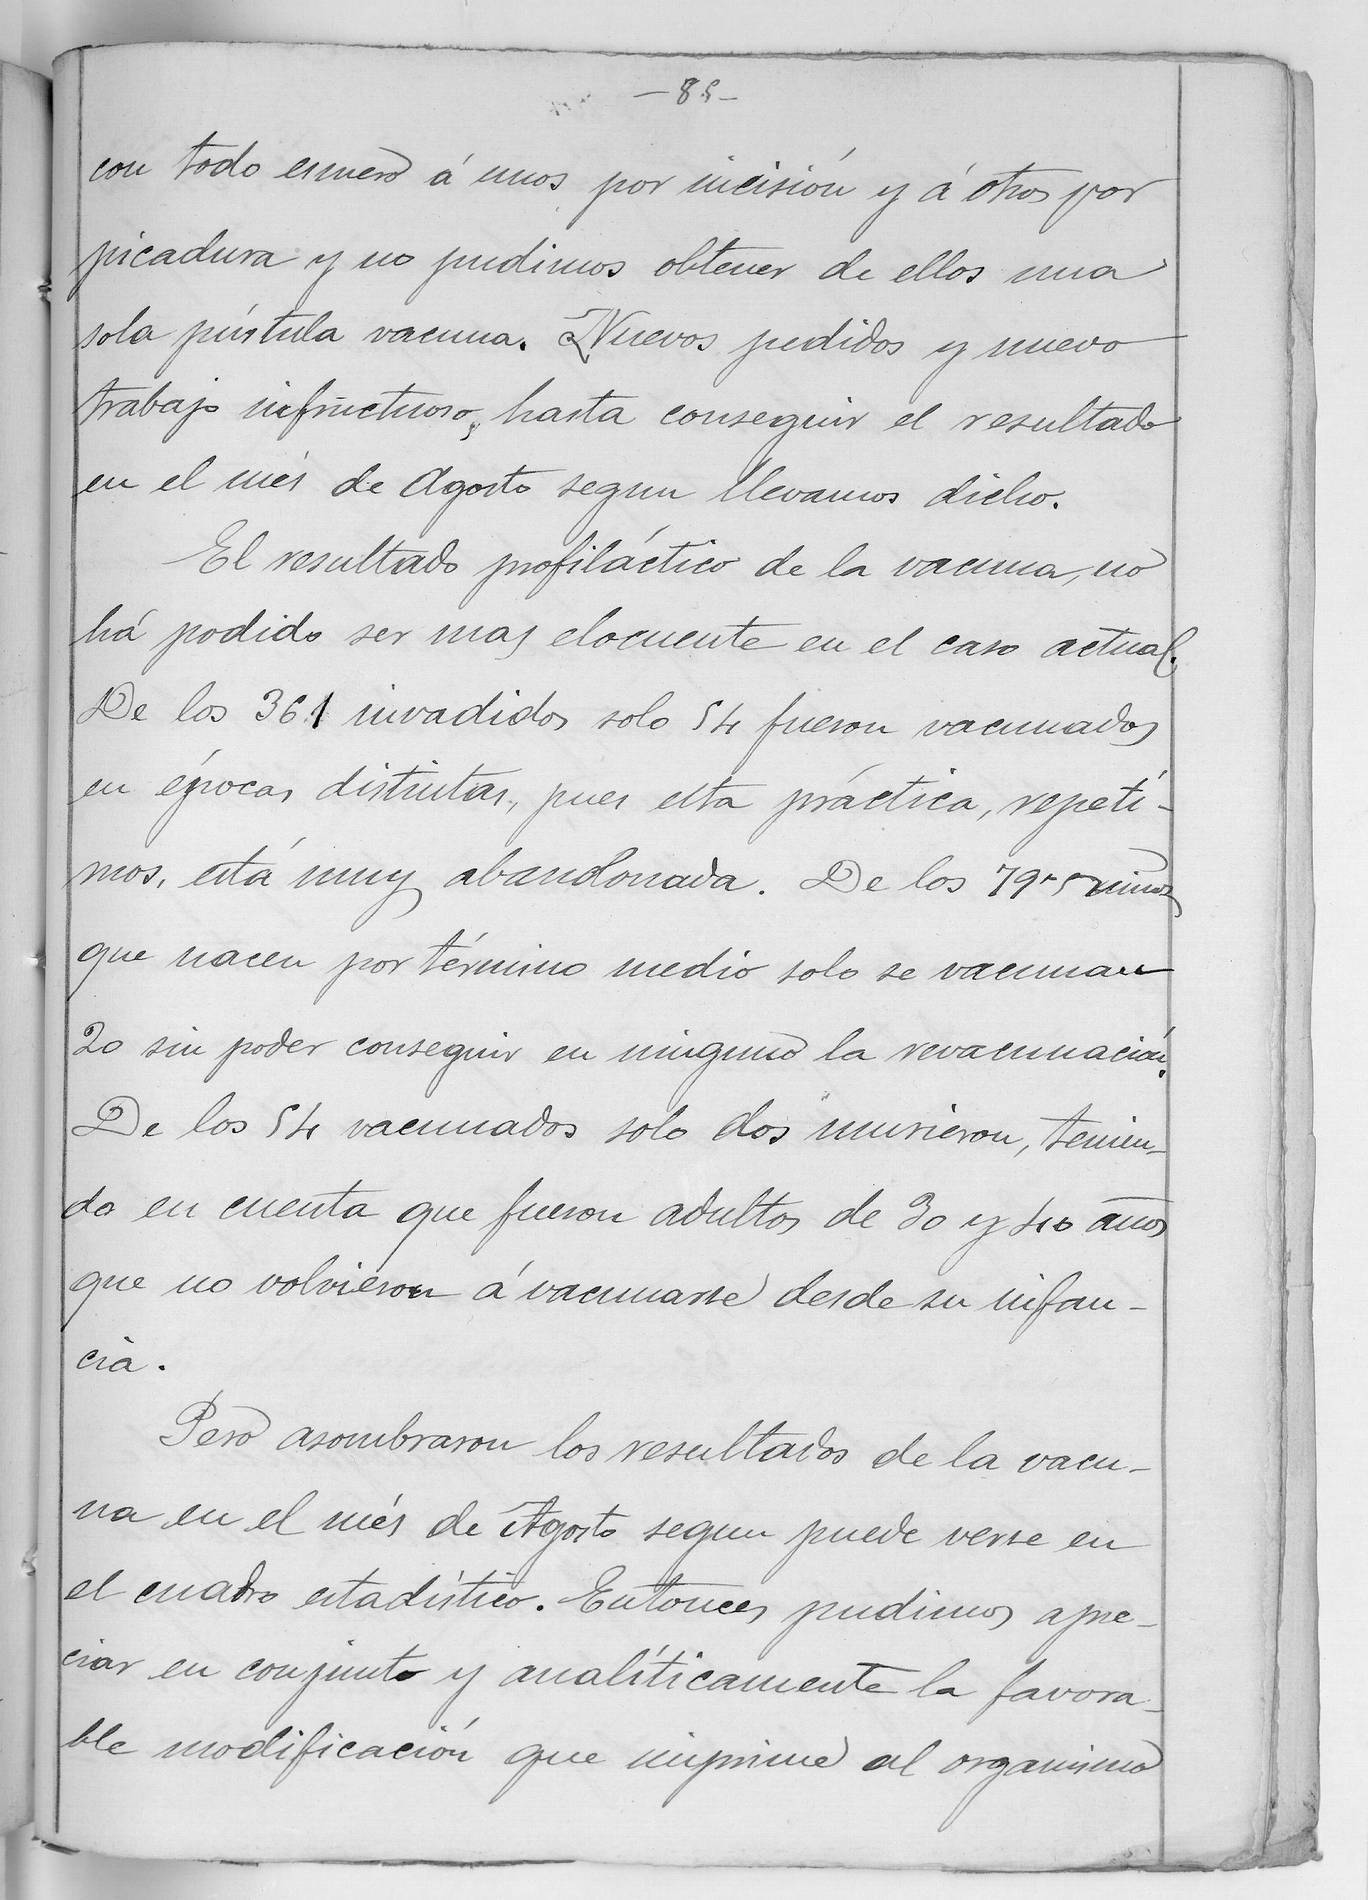 — 85 —
con todo esmero á unos por incisión y á otros por
picadura y no pudimos obtener de ellos una
sola pústula vacuna. Nuevos pedidos y nuevo
trabajo infructuoso, hasta conseguir el resultado
en el més de Agosto segun llevamos dicho.
El resultado profiláctico de la vacuna, no
há podido ser mas elocuente en el caso actual.
De los 361 invadidos solo 54 fueron vacunados
en épocas distintas, pues esta práctica, repeti-
mos, está muy abandonada. De los niños
que nacen por término medio solo se vacunan
20 sin poder conseguir en ninguno la revacunación.
De los 54 vacunados solo dos murieron, tenien-
do en cuenta que fueron adultos de 30 y 40 años
que no volvieron á vacunarse desde su infan-
cia.
Pero asombraron los resultados de la vacu-
na en el més de Agosto segun puede verse en
el cuadro estadístico. Entonces pudimos apre-
ciar en conjunto y analíticamente la favora-
ble modificación que imprime al organismo